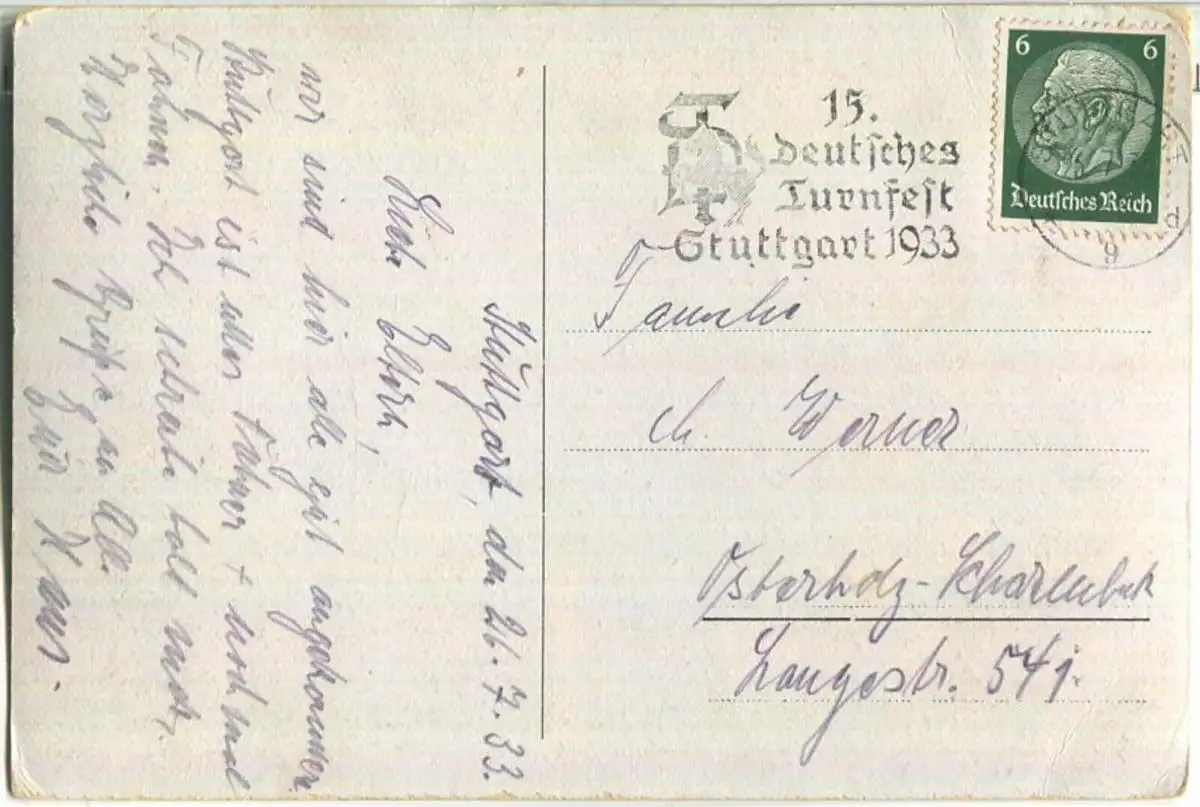 Stuttgart, den 26.7.33.
Liebe Eltern,
wir sind hier alle gut angekommen.
Stuttgart ist alles Fahnen + noch mal
Fahnen. Ich schreibe bald mehr,
Herzliche Grüße an Alle
Euer
15.
Deutsches
Turnfest
Stuttgart 1933
6 6
Deutsches Reich
Familie
Werner
Osterholz-Scharmbeck
Langestr. 54